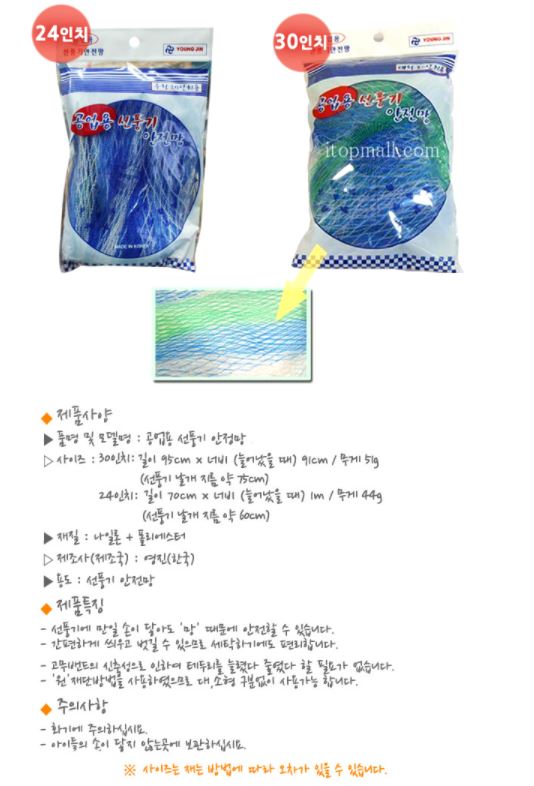 24인치
30인치
선풍기안전망
YOUNG JIN
YOUNG JIN
공업용 선풍기
안전망
공업용 선풍기
안전망
itopmall.com
MADE IN KOREA
제품사양
▶ 품명 및 모델명 : 공업용 선풍기 안정망
▷ 사이즈 : 30인치: 길이 95cm x 너비 (늘어났을 때) 91cm / 무게 51g
(선풍기 날개 지름 약 75cm)
24인치: 길이 70cm x 너비 (늘어났을 때) 1m / 무게 44g
(선풍기 날개 지름 약 60cm)
▶ 재질 : 나일론 + 폴리에스터
▷ 제조사(제조국) : 영진(한국)
▶ 용도 : 선풍기 안전망
제품특징
- 선풍기에 만일 손이 닿아도 '망' 때문에 안전할 수 있습니다.
- 간편하게 씌우고 벗길 수 있으므로 세탁하기에도 편리합니다.
- 고무밴드의 신축성으로 인하여 테두리를 늘렸다 줄였다 할 필요가 없습니다.
- '원'재단방법을 사용하였으므로 대,소형 구분없이 사용가능 합니다.
주의사항
- 화기에 주의하십시요.
- 아이들의 손이 닿지 않는곳에 보관하십시요.
※ 사이즈는 재는 방법에 따라 오차가 있을 수 있습니다.